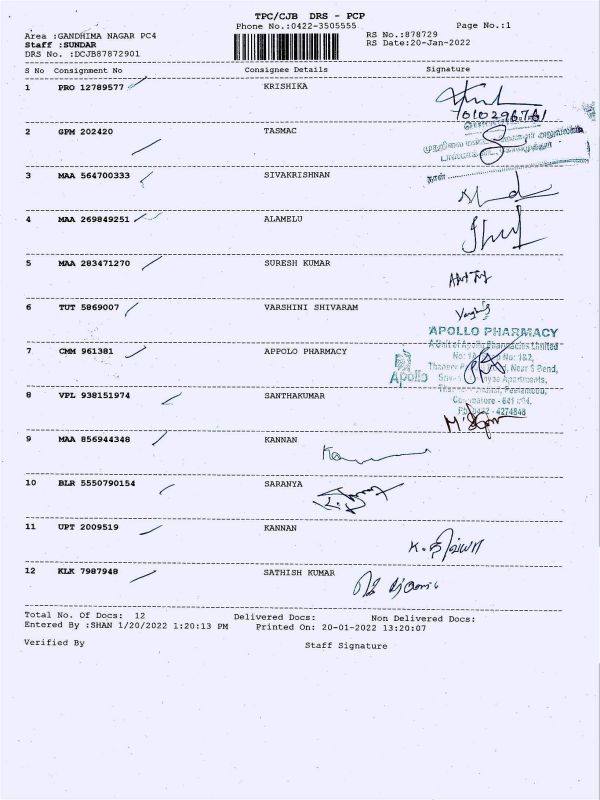 TPC/CJB DRS - PCP
Phone No.:0422-3505555 Page No.:1
Area :GANDHIMA NAGAR PC4 RS No.:878729
Staff :SUNDAR RS Date:20-Jan-2022
DRS No. :DCJB87872901
S No Consignment No Consignee Details Signature
1 PRO 12789577 KRISHIKA
2 GPM 202420 TASMAC
3 MAA 564700333 SIVAKRISHNAN
4 MAA 269849251 ALAMELU
5 MAA 283471270 SURESH KUMAR
6 TUT 5869007 VARSHINI SHIVARAM
APOLLO PHARMACY
A Unit of Apollo Pharmacies Limited
7 CMM 961381 APPOLO PHARMACY
Apollo
8 VPL 938151974 SANTHAKUMAR
Coimbatore - 641 004.
9 MAA 856944348 KANNAN
10 BLR 5550790154 SARANYA
11 UPT 2009519 KANNAN
12 KLK 7987948 SATHISH KUMAR
Total No. Of Docs: 12 Delivered Docs: Non Delivered Docs:
Entered By :SHAN 1/20/2022 1:20:13 PM Printed On: 20-01-2022 13:20:07
Verified By Staff Signature